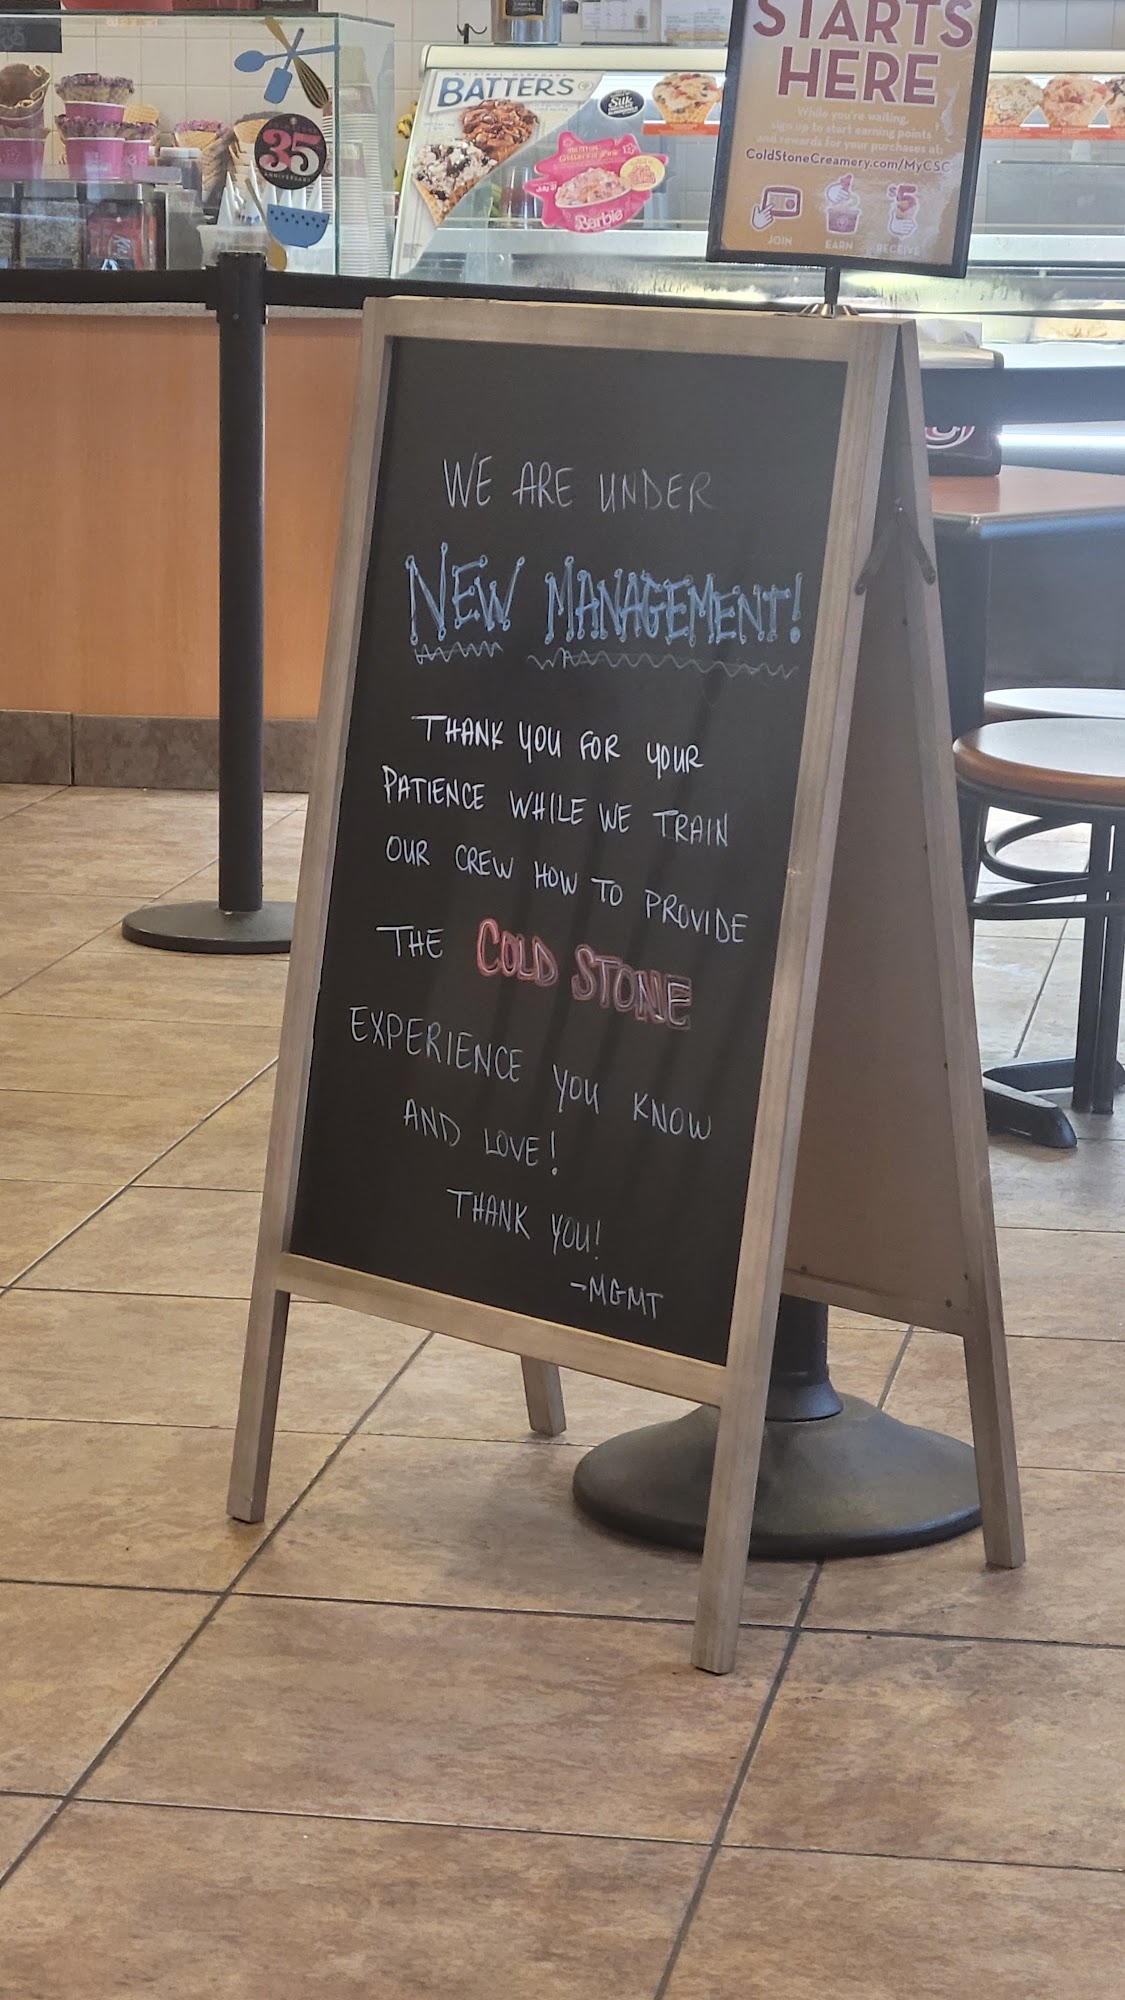 STARTS
HERE
While you're waiting,
sign up to start earning points
and rewards for your purchases at:
ColdStoneCreamery.com/MyCSC
JOIN EARN RECEIVE
$5
BATTERS
Silk
Barbie
35
ANNIVERSARY
WE ARE UNDER
NEW MANAGEMENT!
THANK YOU FOR YOUR
PATIENCE WHILE WE TRAIN
OUR CREW HOW TO PROVIDE
THE COLD STONE
EXPERIENCE YOU KNOW
AND LOVE!
THANK YOU!
-MGMT